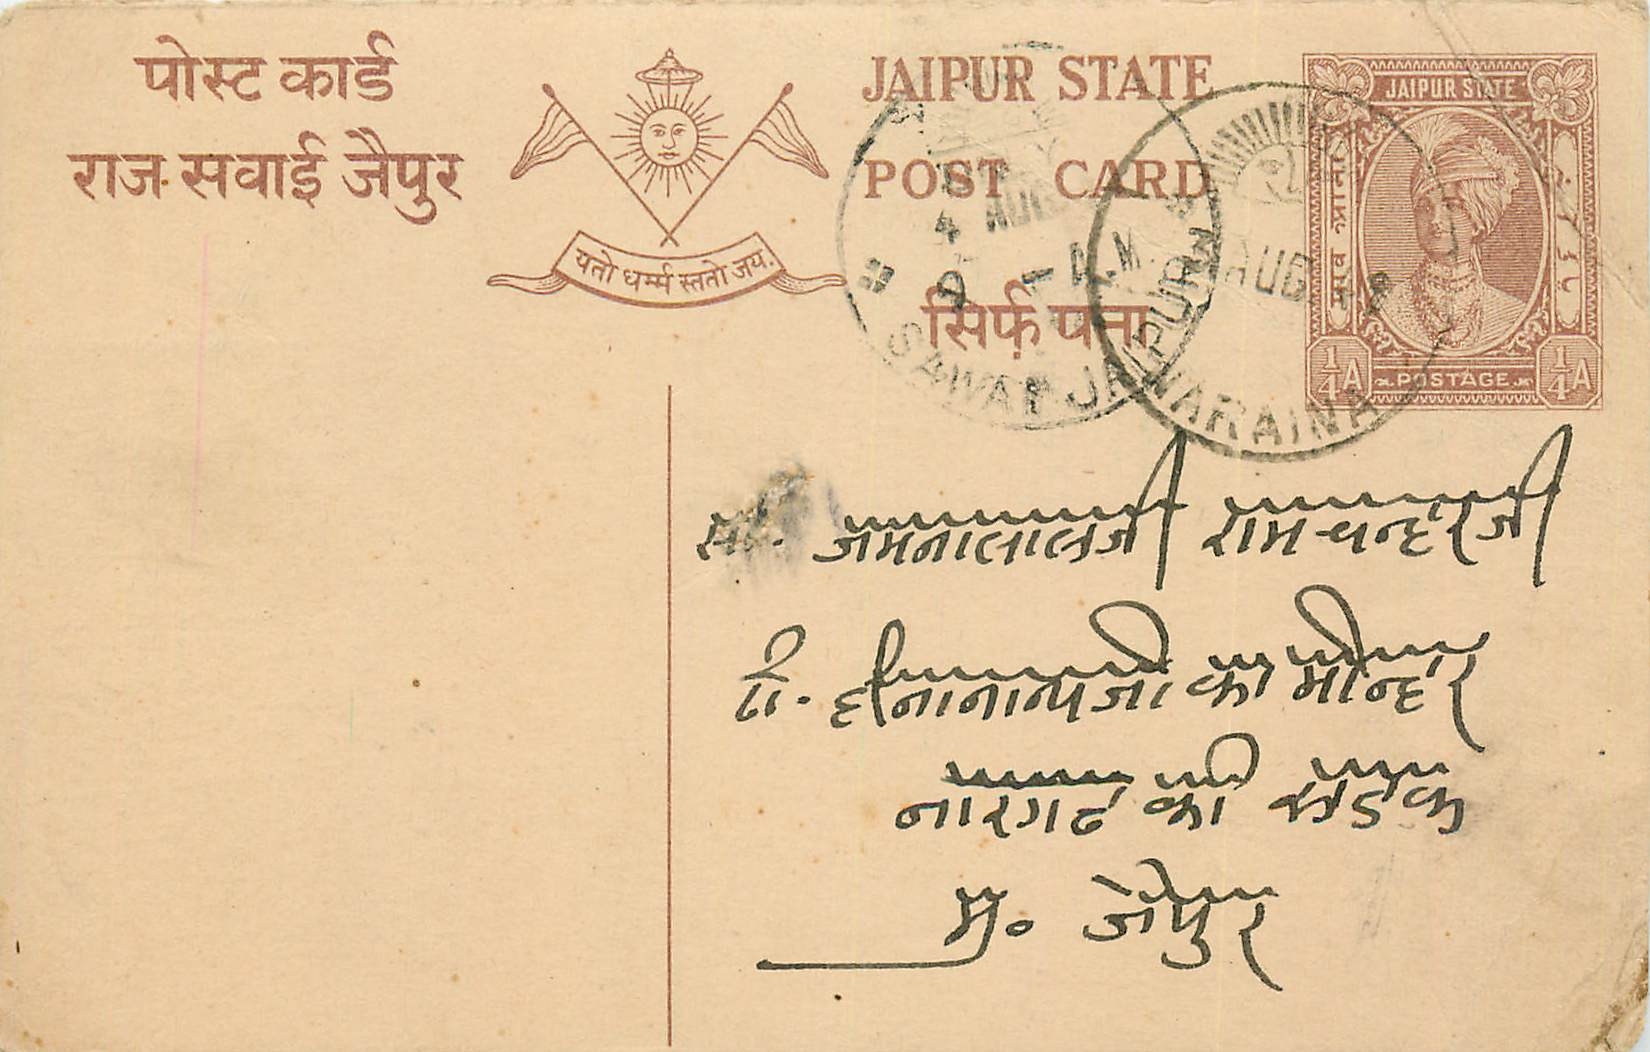 पोस्ट कार्ड
राज सवाई जैपुर
यतो धर्म्म स्ततो जय.
JAIPUR STATE
POST CARD
सिर्फ़ पता
JAIPUR STATE
पाव आना
¼A POSTAGE ¼A
4 AUG
A.M.
SAWAI JAIPUR
AUG
NARAINA
जमनालालजी रामचन्दरजी
पु. दीनानाथजी का मन्दिर
नारगढ की सडक
मु० जेपुर